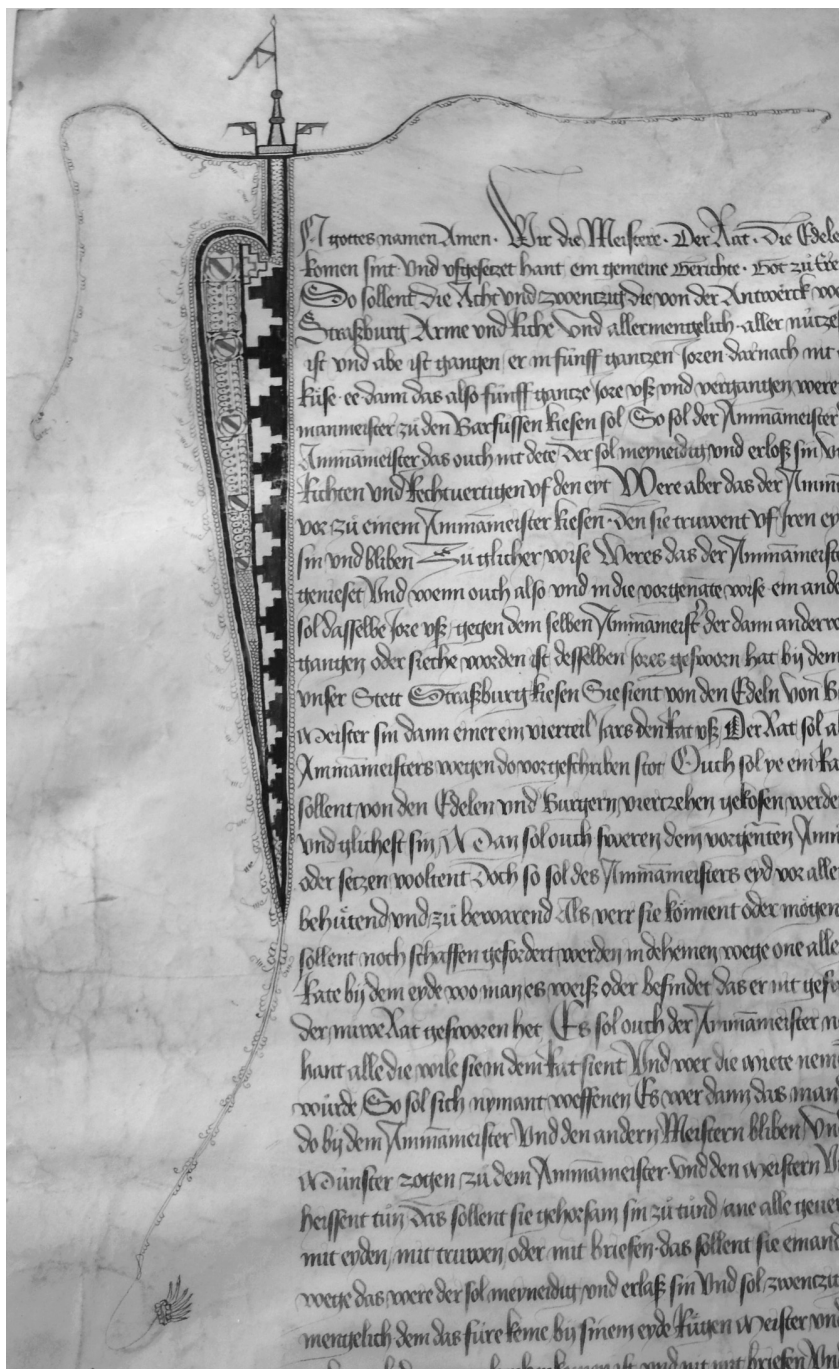 In gottes namen Amen. Wir die Meistere. Der Rat. Die Edele
komen sint Vnd vfgesetzet hant ein gemeine Gerichte. Got zů Ere
So sollent Die Acht vnd zwentzig die von der Antwerck vo
Straßburg Arme vnd Riche Vnd allermengelich. aller nútze
ist vnd abe ist gangen er in fúnff gantzen Joren darnach nit
kúse. ee dann das also fúnff gantze Jore vß vnd vergangen were
manmeister zů den Barfůssen kiesen sol So sol der Ammāmeister
Ammāmeister das ouch nit dete Der sol meyneidig vnd erloß sin Vn
Richten vnd Rechtuertigen vf den eyt Were aber das der Ammā
vor zů einem Ammāmeister kiesen. den sie truwent vf Jren ey
sin vnd bliben Zů glicher wise Weres das der Ammāmeiste
genieset Vnd wenn ouch also vnd in die vorgenāte wise ein ande
sol dasselbe Jore vß gegen dem selben Ammāmeist̄ der dann anderwe
gangen oder sieche worden ist desselben Jores gesworn hat bij dem
vnser Stett Straßburg kiesen Sie sient von den Edeln von B
Meister sin dann einer ein vierteil Jars den Rat vß Der Rat sol a
Ammāmeisters wegen do vorgeschriben stot Ouch sol ye ein Ra
sollent von den Edelen vnd Burgern viertzehen gekosen werde
vnd glichest sin Man sol ouch sweren dem vorgen̄ten Amm
oder setzen woltent Doch so sol des Ammāmeisters eyd vor alle
behůtend vnd zů bewarend Als verr sie kónnent oder mógen
sollent noch schaffen gefordert werden in dehemen wege one alle
Rate bij dem eyde wo man es weiß oder befindet das er nit gesw
der nuwe Rat gesworen het Es sol ouch der Ammāmeister n
hant alle die wile sie in dem Rat sient Vnd wer die miete nem
wúrde So sol sich nymant weffenen Es wer dann das man
do bij dem Ammāmeister Vnd den andern Meistern bliben Vn
Múnster zogen zů dem Ammāmeister. vnd den meistern V
heissent tůn Das sollent sie gehorsam sin zů tůnd ane alle geuer
mit eyden, mit truwen oder mit briefen. das sollent sie einand
wege das were der sol meyneidig vnd erloß sin Vnd sol zwentzig
mengelich dem das fúre keme bij sinem eyde Rúgen Meister vnd